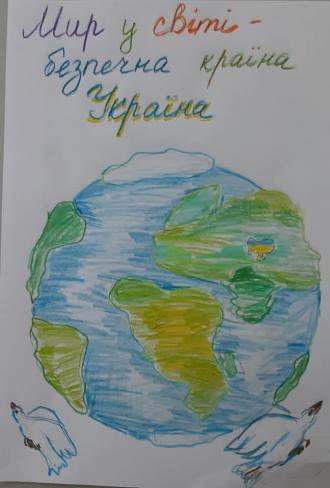 Мир у світі -
безпечна країна
Україна